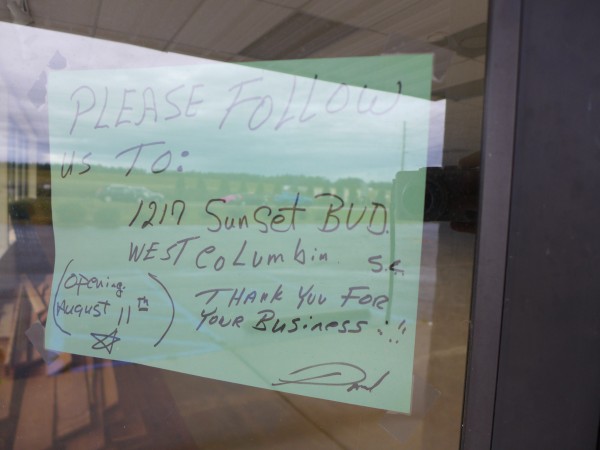 PLEASE FOLLOW
us To:
1217 Sunset BLVD.
WEST Columbia S.C.
(opening August 11th)
THANK YOU FOR
YOUR Business